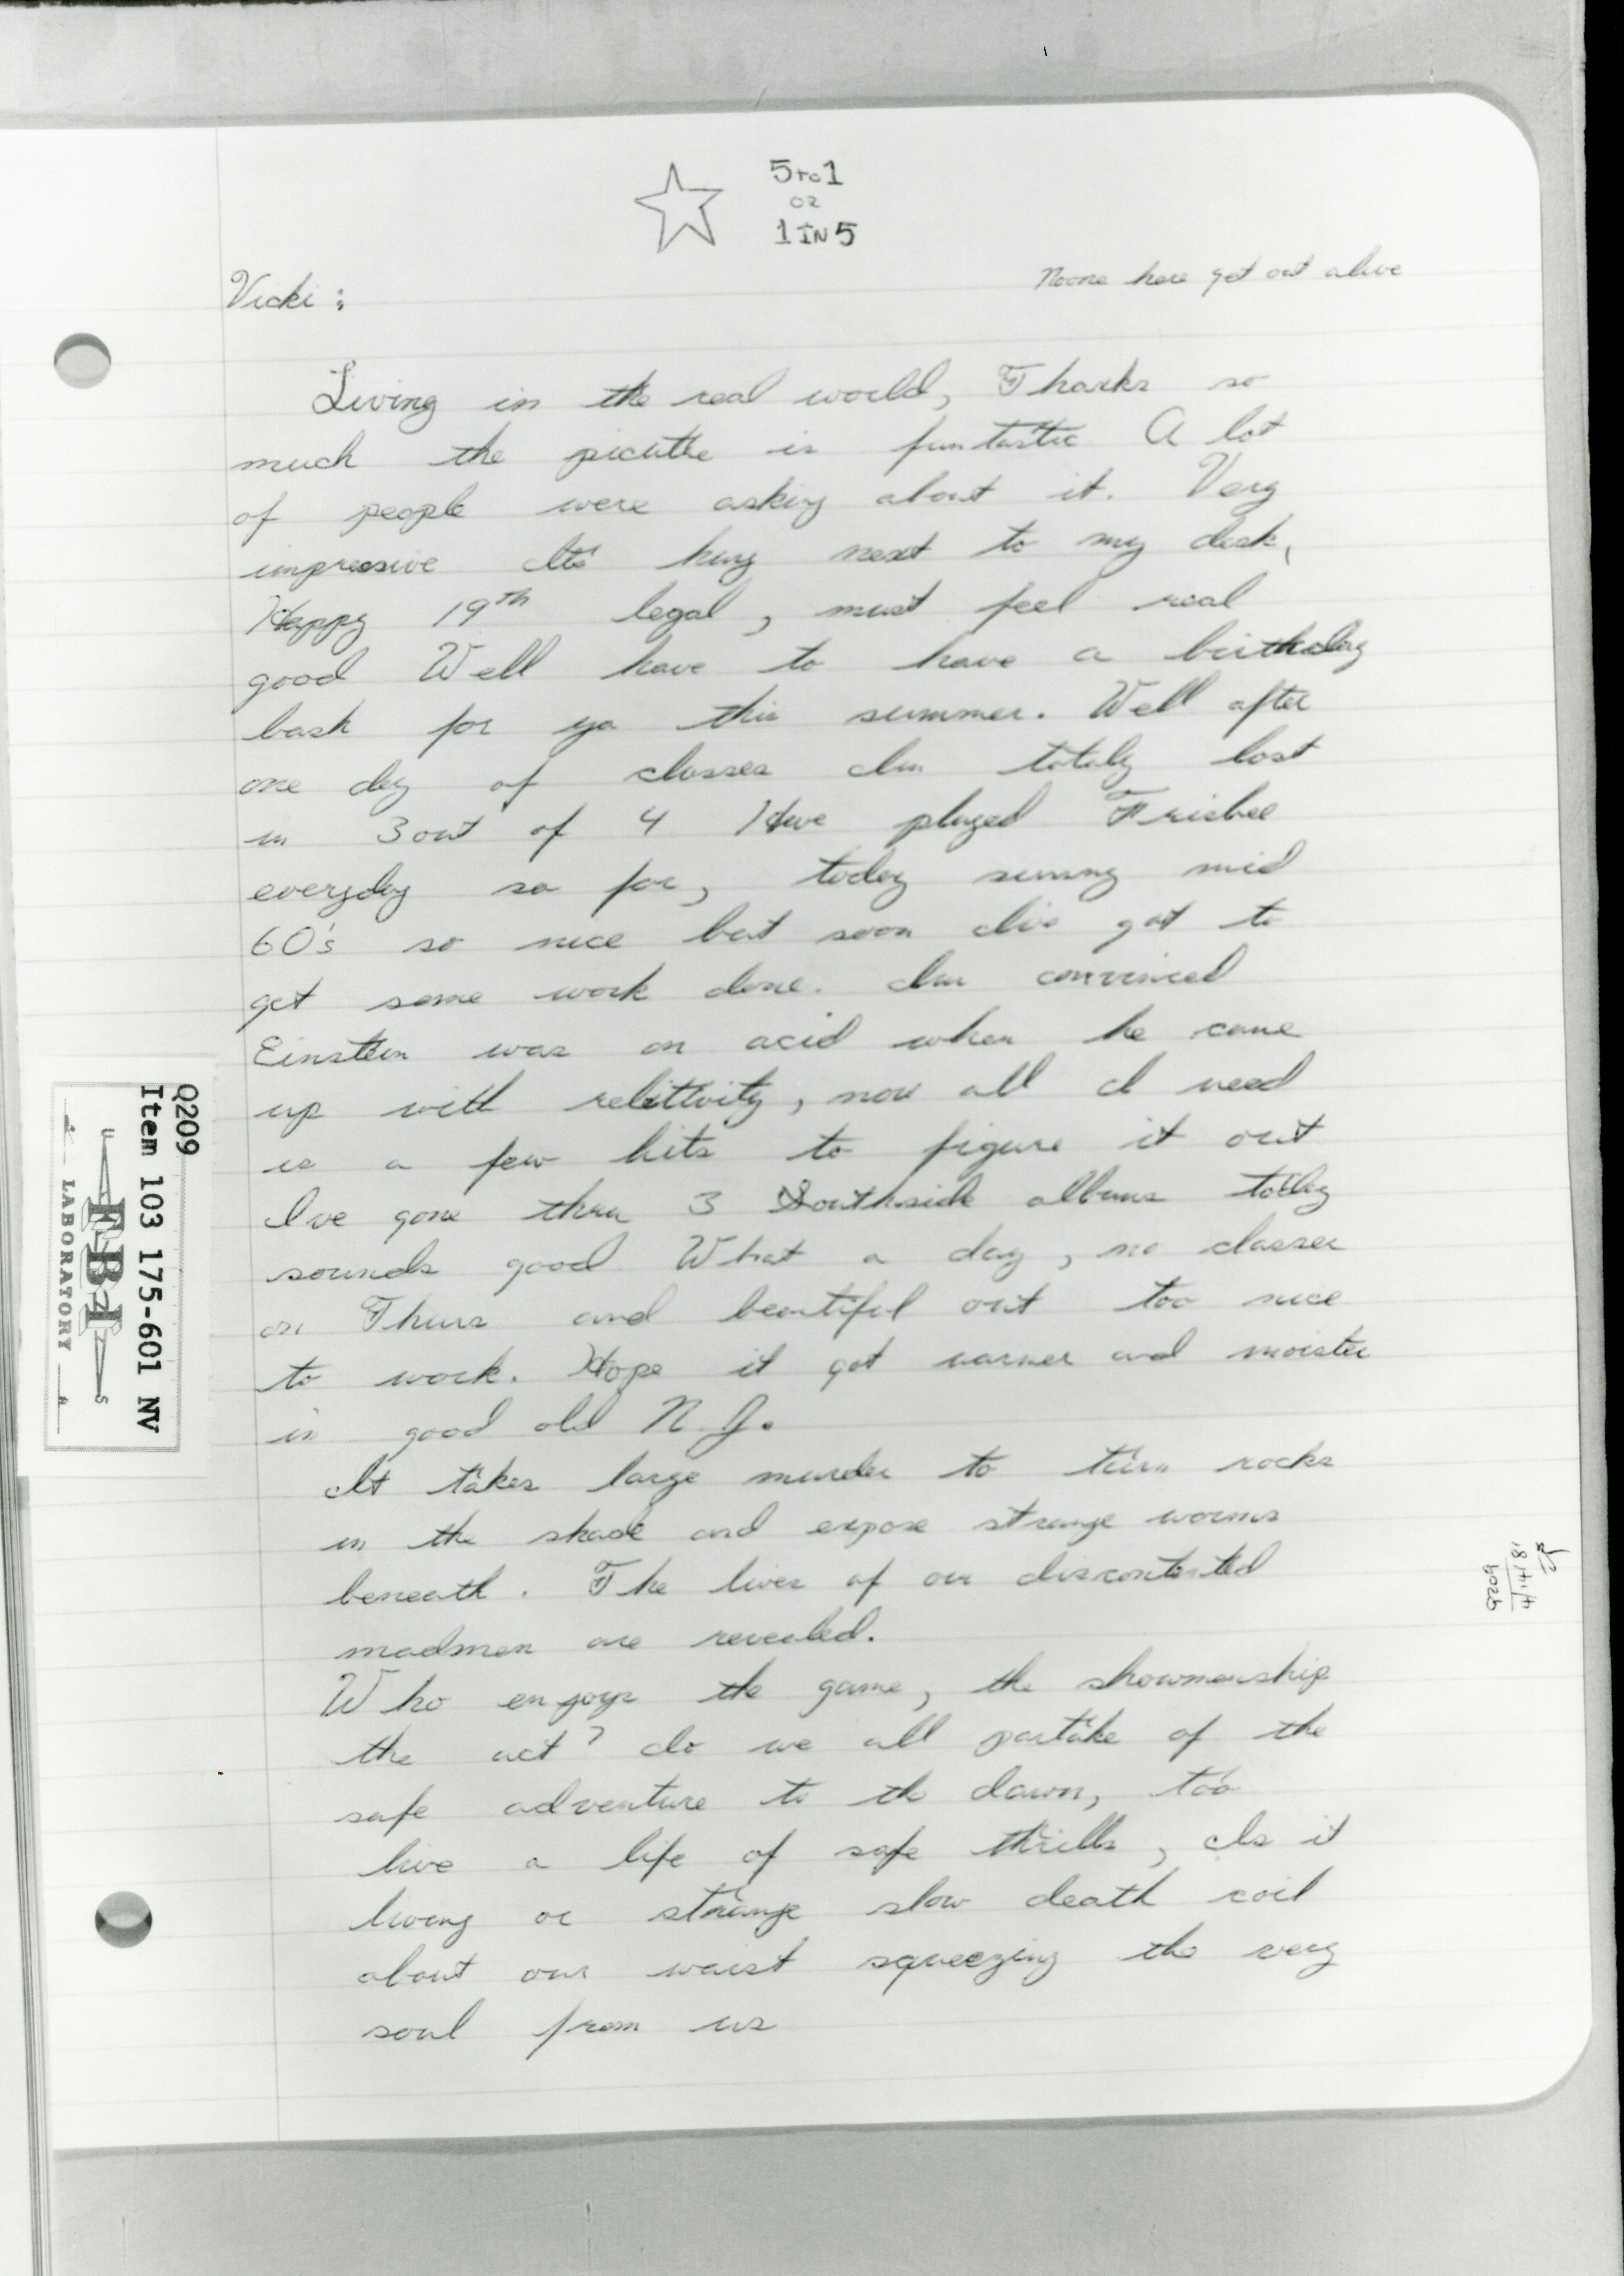 5 to 1
OR
1 IN 5
Noone here get out alive
Vicki :
Living in the real world, Thanks so
much the picutte is funtastic A lot
of people were asking about it. Very
impressive Its' hung next to my desk,
Happy 19th legal, must feel real
good Well have to have a birthday
bash for ya this summer. Well after
one day of classes Im totaly lost
in 3 out of 4 Have played Frisbee
everyday so far, today sunny mid
60's so nice but soon Ive got to
get some work done. Im convinced
Einstein was on acid when he came
up with relitivity, now all I need
is a few hits to figure it out
Ive gone thru 3 Southside albums today
sounds good What a day, no classes
on Thurs and beautiful out too nice
to work. Hope it got warmer and moister
in good old N.J.
It takes large murder to turn rocks
in the shade and expose strange worms
beneath. The lives of our discontented
madmen are revealed.
Who enjoys the game, the showmanship
the act? do we all partake of the
safe adventure to the dawn, too
live a life of safe thrills, Is it
living or strange slow death coil
about our waist squeezing the very
soul from us
Q209
Item 103 175-601 NV
FBI
LABORATORY